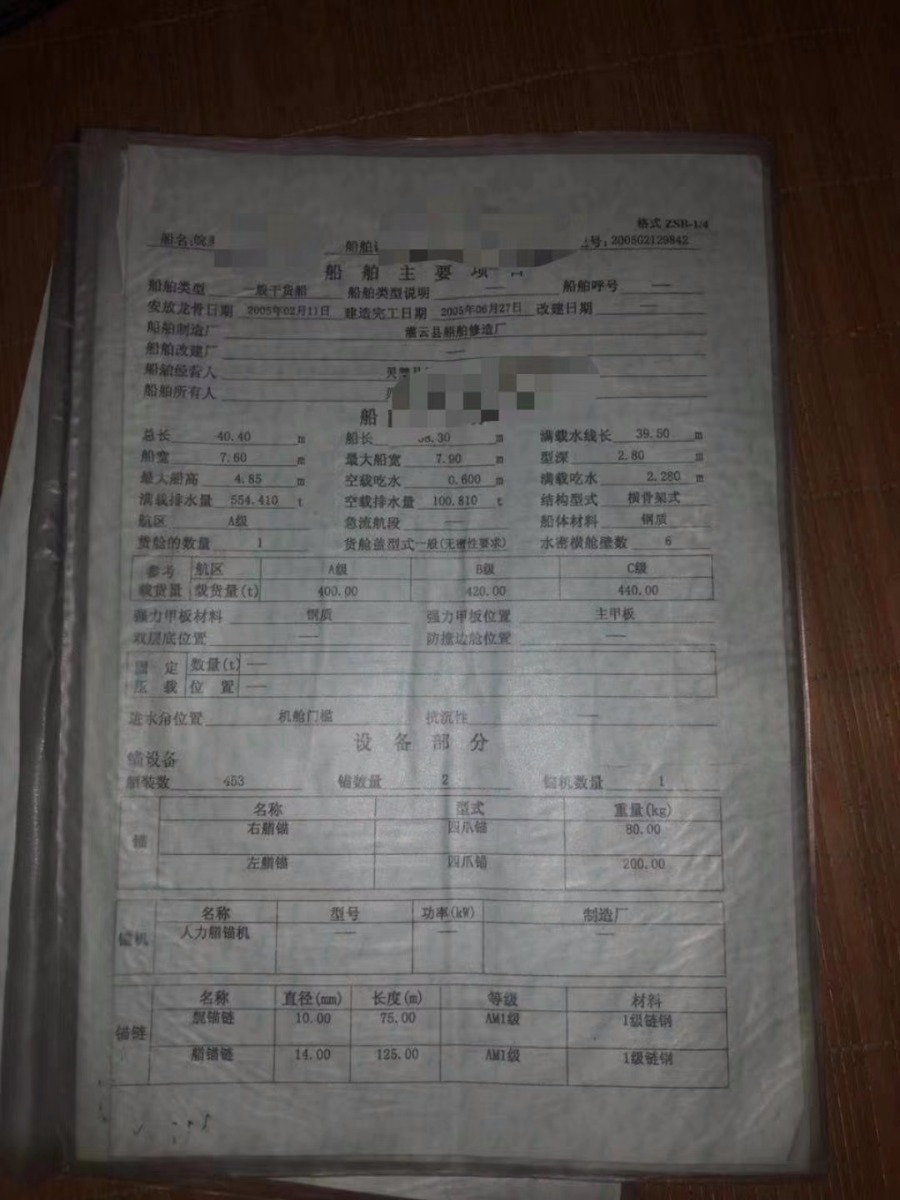 格式 ZSB-1/4
船名:皖 船舶 号:2005G2129842
船舶主要项目
船舶类型 一般干货船 船舶类型说明 — 船舶呼号 —
安放龙骨日期 2005年02月11日 建造完工日期 2005年06月27日 改建日期 —
船舶制造厂 灌云县船舶修造厂
船舶改建厂 —
船舶经营人
船舶所有人
船
总长 40.40 m 船长 .30 m 满载水线长 39.50 m
船宽 7.60 m 最大船宽 7.90 m 型深 2.80 m
最大船高 4.85 m 空载吃水 0.600 m 满载吃水 2.280 m
满载排水量 554.410 t 空载排水量 100.810 t 结构型式 横骨架式
航区 A级 急流航段 — 船体材料 钢质
货舱的数量 1 货舱盖型式 一般(无密性要求) 水密横舱壁数 6
参考 航区 A级 B级 C级
载货量 载货量(t) 400.00 420.00 440.00
强力甲板材料 钢质 强力甲板位置 主甲板
双层底位置 — 防撞边舱位置 —
固定 数量(t) —
压载 位置 —
进水角位置 机舱门槛 抗沉性 —
设备部分
锚设备
舾装数 453 锚数量 2 锚机数量 1
名称 型式 重量(kg)
右艏锚 四爪锚 80.00
锚
左艏锚 四爪锚 200.00
名称 型号 功率(kW) 制造厂
锚机 人力艏锚机 — — —
名称 直径(mm) 长度(m) 等级 材料
艉锚链 10.00 75.00 AM1级 1级链钢
锚链
艏锚链 14.00 125.00 AM1级 1级链钢